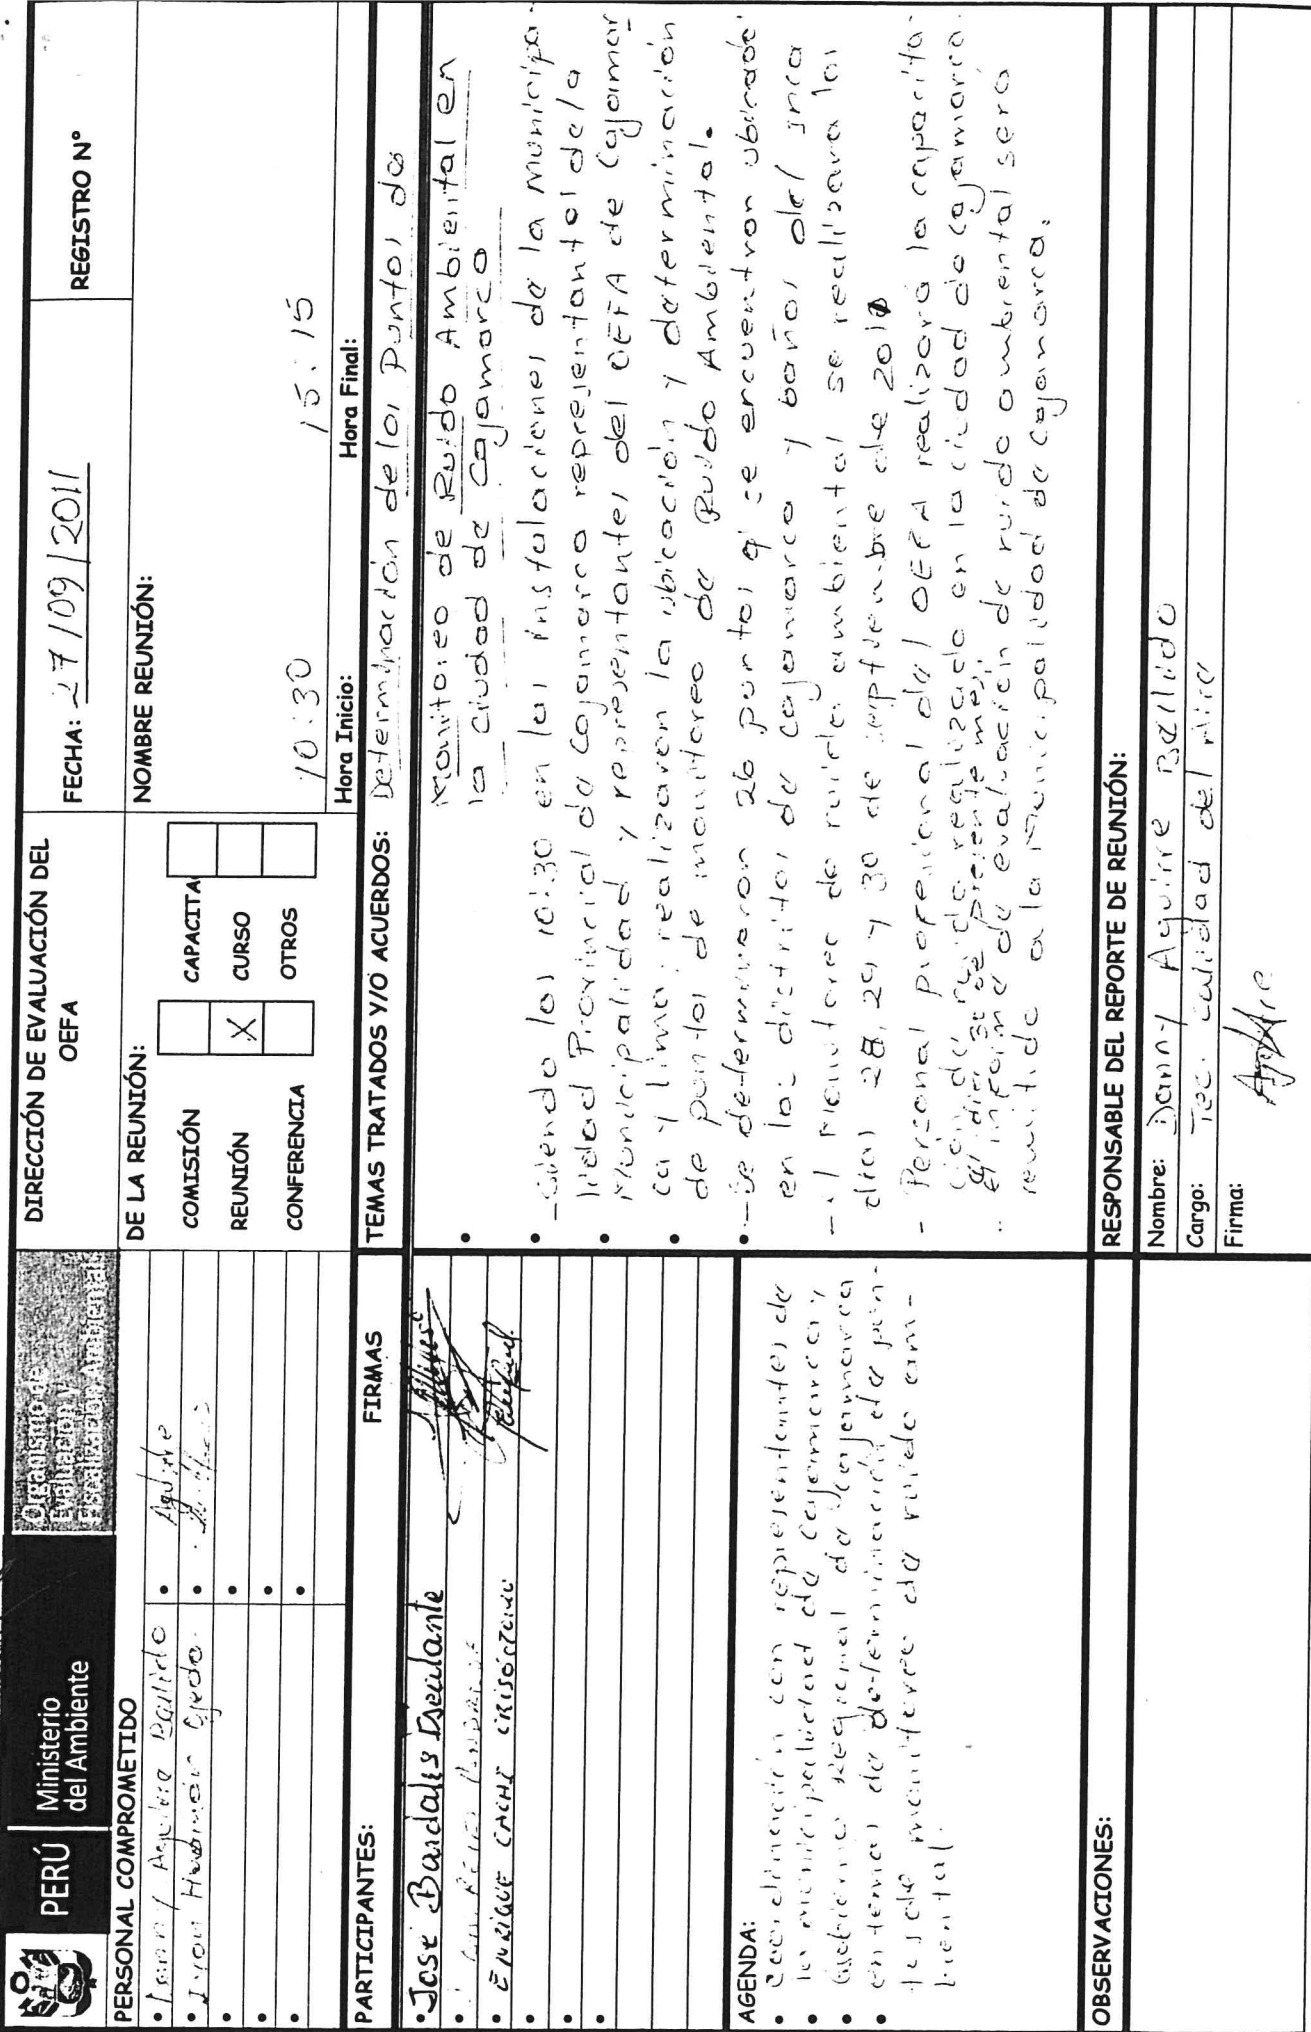 PERÚ
Ministerio
del Ambiente
Organismo de
Evaluación y
Fiscalización Ambiental
DIRECCIÓN DE EVALUACIÓN DEL
OEFA
FECHA: 27/09/2011
REGISTRO N°
PERSONAL COMPROMETIDO
• Danny Aguirre Bellido • Aguirre
• Huamán Ojeda •
DE LA REUNIÓN:
COMISIÓN
CAPACITA
REUNIÓN X
CURSO
CONFERENCIA
OTROS
NOMBRE REUNIÓN:
10:30 15:15
Hora Inicio: Hora Final:
PARTICIPANTES: FIRMAS
• José Bardales Escalante
• ENRIQUE CACHI CRISÓSTOMO
AGENDA:
• Coordinación con representantes de
la municipalidad de Cajamarca y
Gobierno Regional de Cajamarca
en temas de determinación de pun-
tos de monitoreo de ruido am-
biental.
OBSERVACIONES:
TEMAS TRATADOS Y/O ACUERDOS: Determinación de los Puntos de
Monitoreo de Ruido Ambiental en
la ciudad de Cajamarca
- Siendo las 10:30 en las instalaciones de la Municipa
lidad Provincial de Cajamarca representantes de la
Municipalidad y representantes del OEFA de Cajamar
ca y Lima; realizaron la ubicación y determinación
de puntos de monitoreo de Ruido Ambiental.
- Se determinaron 26 puntos q' se encuentran ubicado
en los distritos de Cajamarca y baños del Inca
- El Monitoreo de ruido ambiental se realizara los
dias 28, 29 y 30 de septiembre de 2011
- Personal profesional del OEFA realizará la capacita
ción de ruido realizado en la ciudad de Cajamarca
el día 30 de presente mes.
- El informe de evaluación de ruido ambiental sera
remitido a la Municipalidad de Cajamarca.
RESPONSABLE DEL REPORTE DE REUNIÓN:
Nombre: Danny Aguirre Bellido
Cargo: Tec. calidad del Aire
Firma: Aguirre